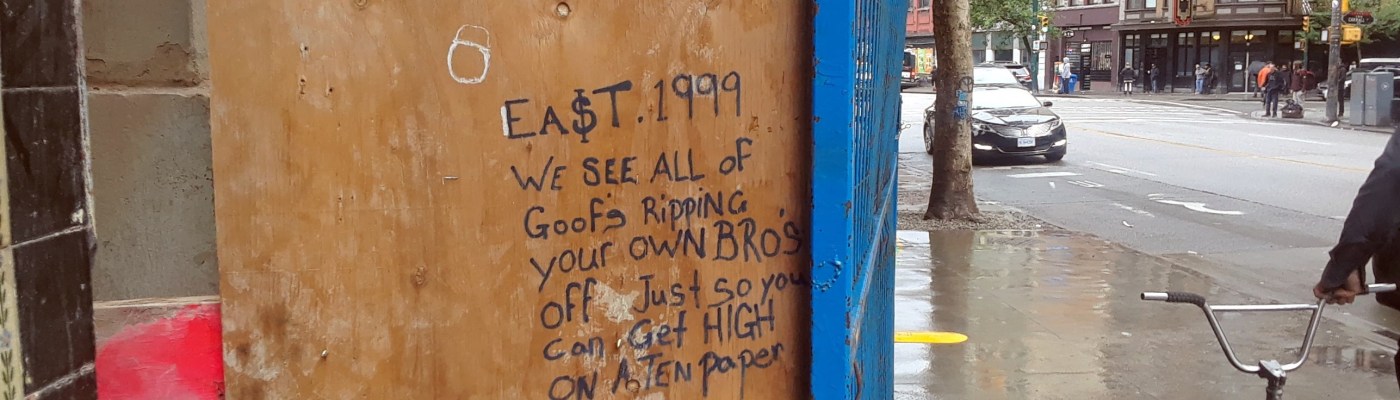 EA$T. 1999
WE SEE ALL OF
Goofs RiPPiNG
your OWN BRO's
off Just so you
can Get HIGH
ON A TEN paper